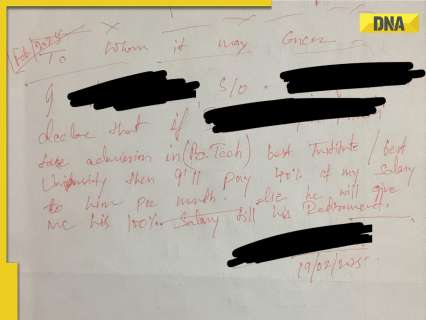 DNA
To Whom it may Concer
I S/O
declare that if
take admission in (B.Tech) best Institute / best
University then I'll pay 40% of my salary
to him per month. else he will give
me his 100% Salary till his Retirement.
19/02/2025